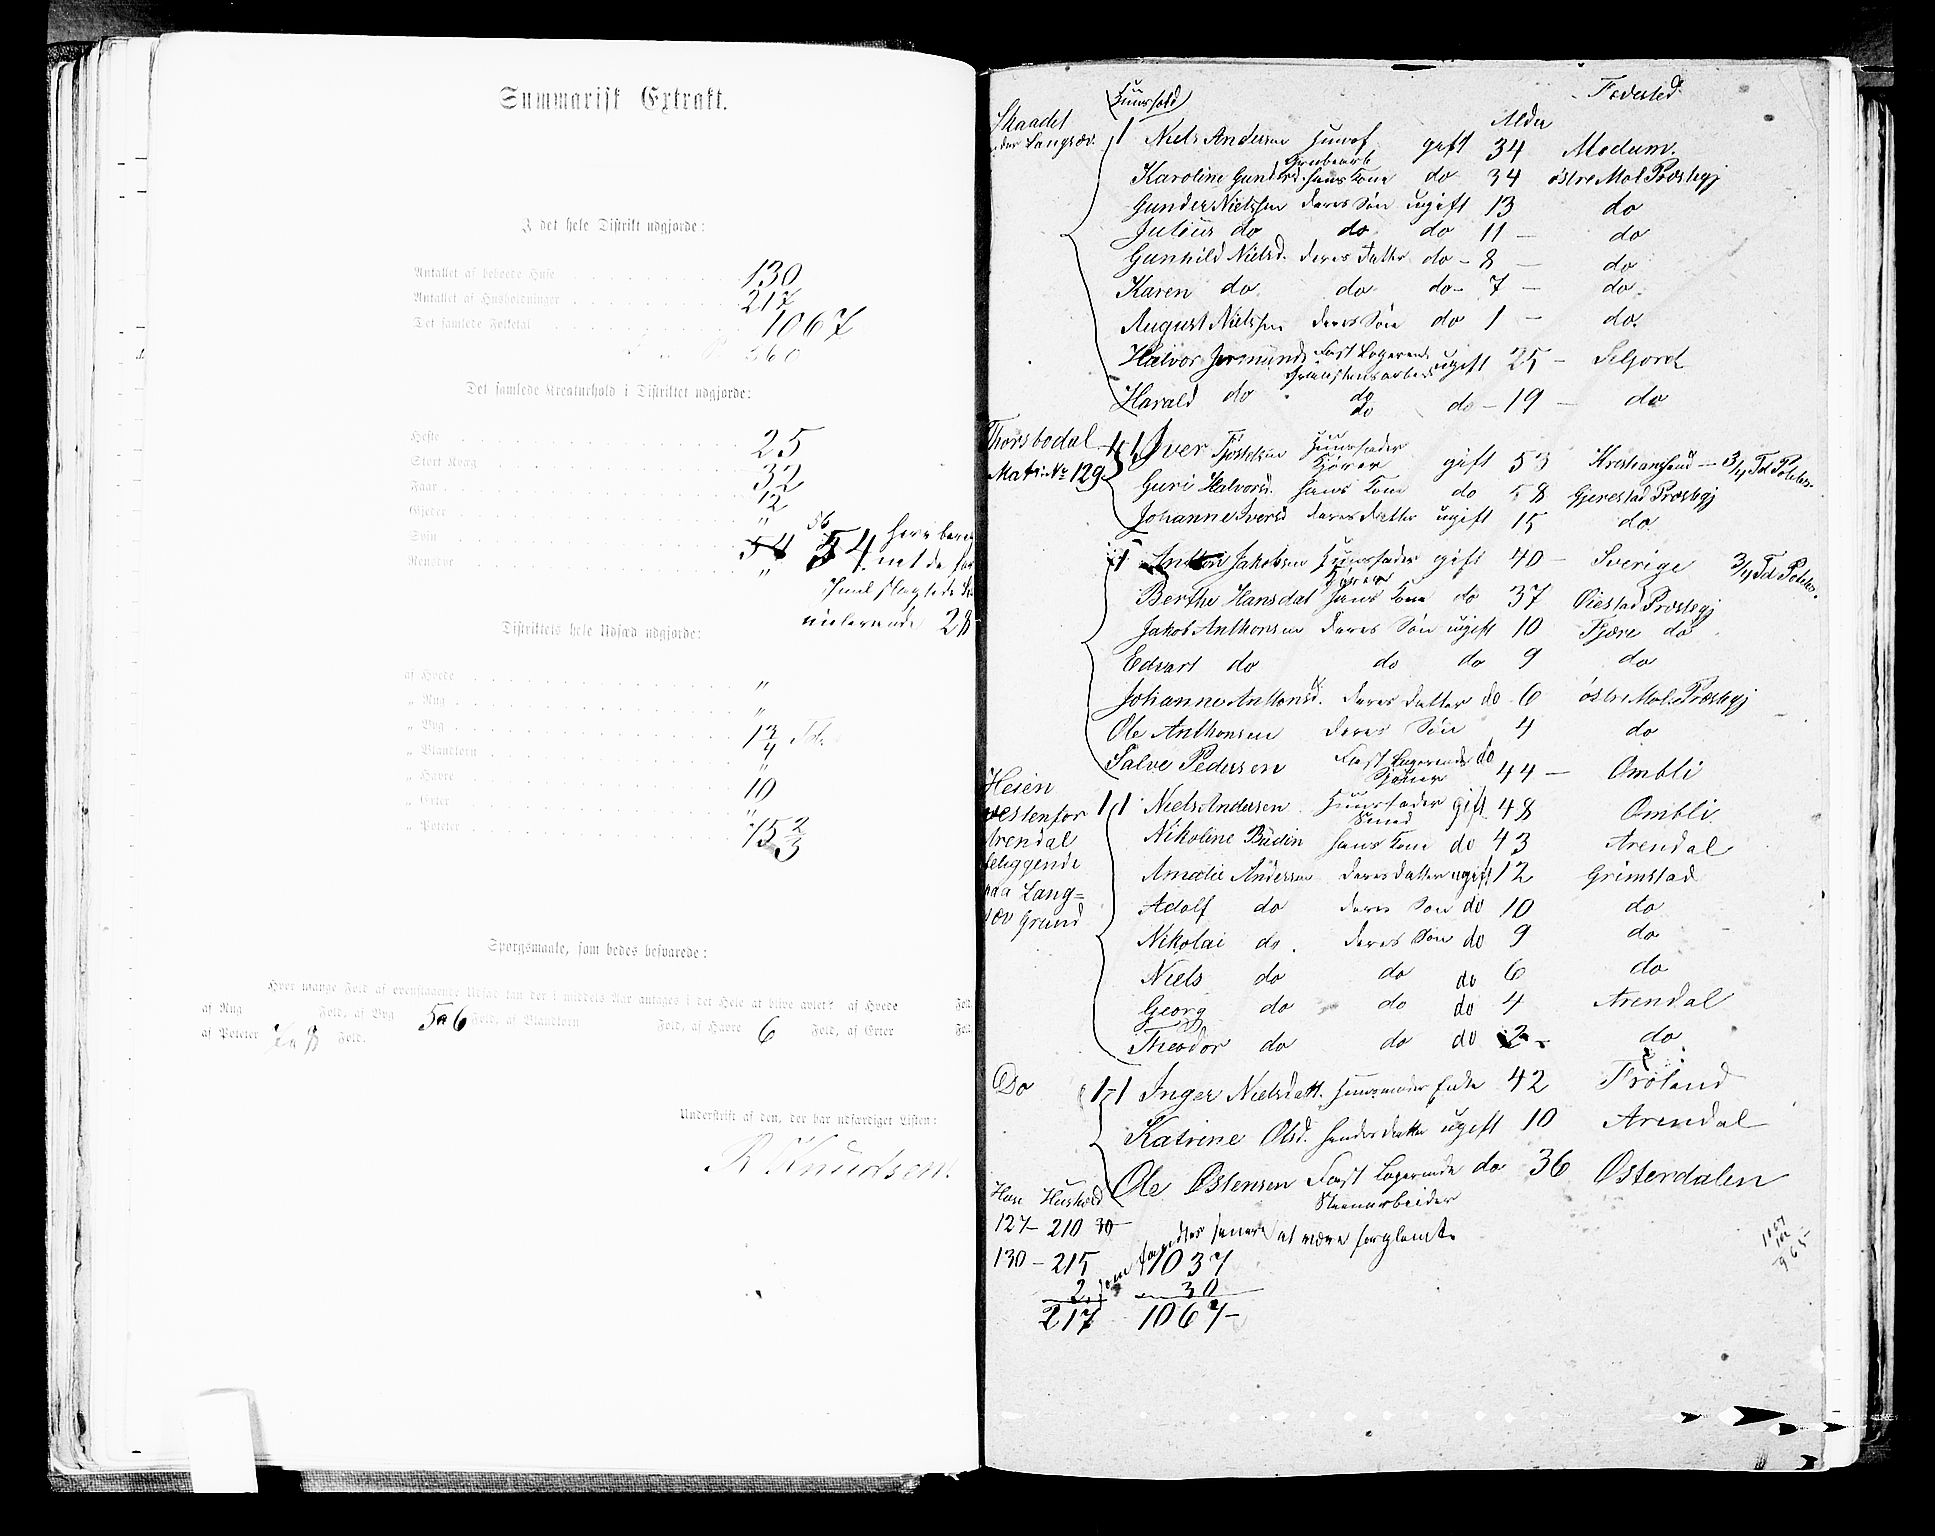 Summarisk Extrakt.
I det hele Distrikt udgjorde:
Antallet af beboede Huse 130
Antallet af Husholdninger 217
Det samlede Folketal 1067
360
Det samlede Kreaturhold i Distriktet udgjorde:
Heste 25
Stort Kvæg 32
Faar 12
Gjeder "
Sviin 54 56 54 heri bereg
Rensdyr " net de før
Juul slagtede
nulevende 28
Distriktets hele Udsæd udgjorde:
af Hvede "
" Rug "
" Byg 13/4
" Blandkorn "
" Havre 10
" Erter "
" Poteter 75 2/3
Spørgsmaale, som bedes besvarede:
Hvor mange Fold af ovenstaaende Udsæd kan der i middels Aar antages i det Hele at blive avlet? af Hvede Fol
af Rug Fold, af Byg 5a6 Fold, af Blandkorn Fold, af Havre 6 Fold, af Erter Fol
af Poteter 7a8 Fold.
Underskrift af den, der har udfærdiget Listen:
R Knudsen.
Huusfold Alder Fødested
Skaadet
under Langsæv. 1 Niels Andersen Huusf. gift 34 Modum.
Grubearb
Karoline Gundersd. hans Kone do 34 østre Mol Præstegj
Gunder Nielsen deres Søn ugift 13 do
Julius do do do 11 — do
Gunhild Nielsd. deres Datter do - 8 — do
Karen do do do - 7 — do
August Nielsen deres Søn do 1 — do.
Halvor Jermunds Fast Logerende ugift 25 — Seljord
Grubstensarbeid
Harald do do do — 19 — do
do
Thorsbodal 1 1 Iver Tjøstelsen Huusfader gift 53 Kristiansand — 3/4 Td Poteter.
Matr: No 129 Kjører
Guri Halvorsd. hans Kone do 58 Gjerestad Præstegj
Johanne Iversd deres datter ugift 15 do
1 Anthon Jakobsen Huusfader gift 40 — Sverige 3/4 Td Poteter.
Kjører
Berthe Hansdat hans Kone do 37 Øiestad Præstegj
Jakob Anthonsen deres Søn ugift 10 Fjære do
Edvart do do do 9 do
Johanne Anthonsd. deres datter do 6 østre Mol. Præstegj
Ole Anthonsen deres Søn 4 do
Salve Pedersen Fast Logerende do 44 — Ombli
Kjører
Heien
vestenfor 1 1 Niels Andersen Huusfader gift 48 Ombli
Smed
Arendal Nikoline Budin hans Kone do 43 Arendal
beliggende Amalie Andersen deres datter ugift 12 Grimstad
paa Lang=
sæv Grund Adolf do deres Søn do 10 do
Nikolai do. deres Søn do 9 do
Niels do do do 6 do
Georg do do do 4 Arendal
Theodor do do do 2 - do
Do 1-1 Inger Nielsdatt. Huusmoder Enke 42 Frøland
Katrine Olsd. hendes datter ugift 10 Arendal
Ole Østensen Fast Logerende do 36 Østerdalen
Steenarbeider
Huse Hushold
127 - 210 30
som fandtes senere at være forglemt.
130 - 215 1037
2 30
217 1067-
1107
102
965